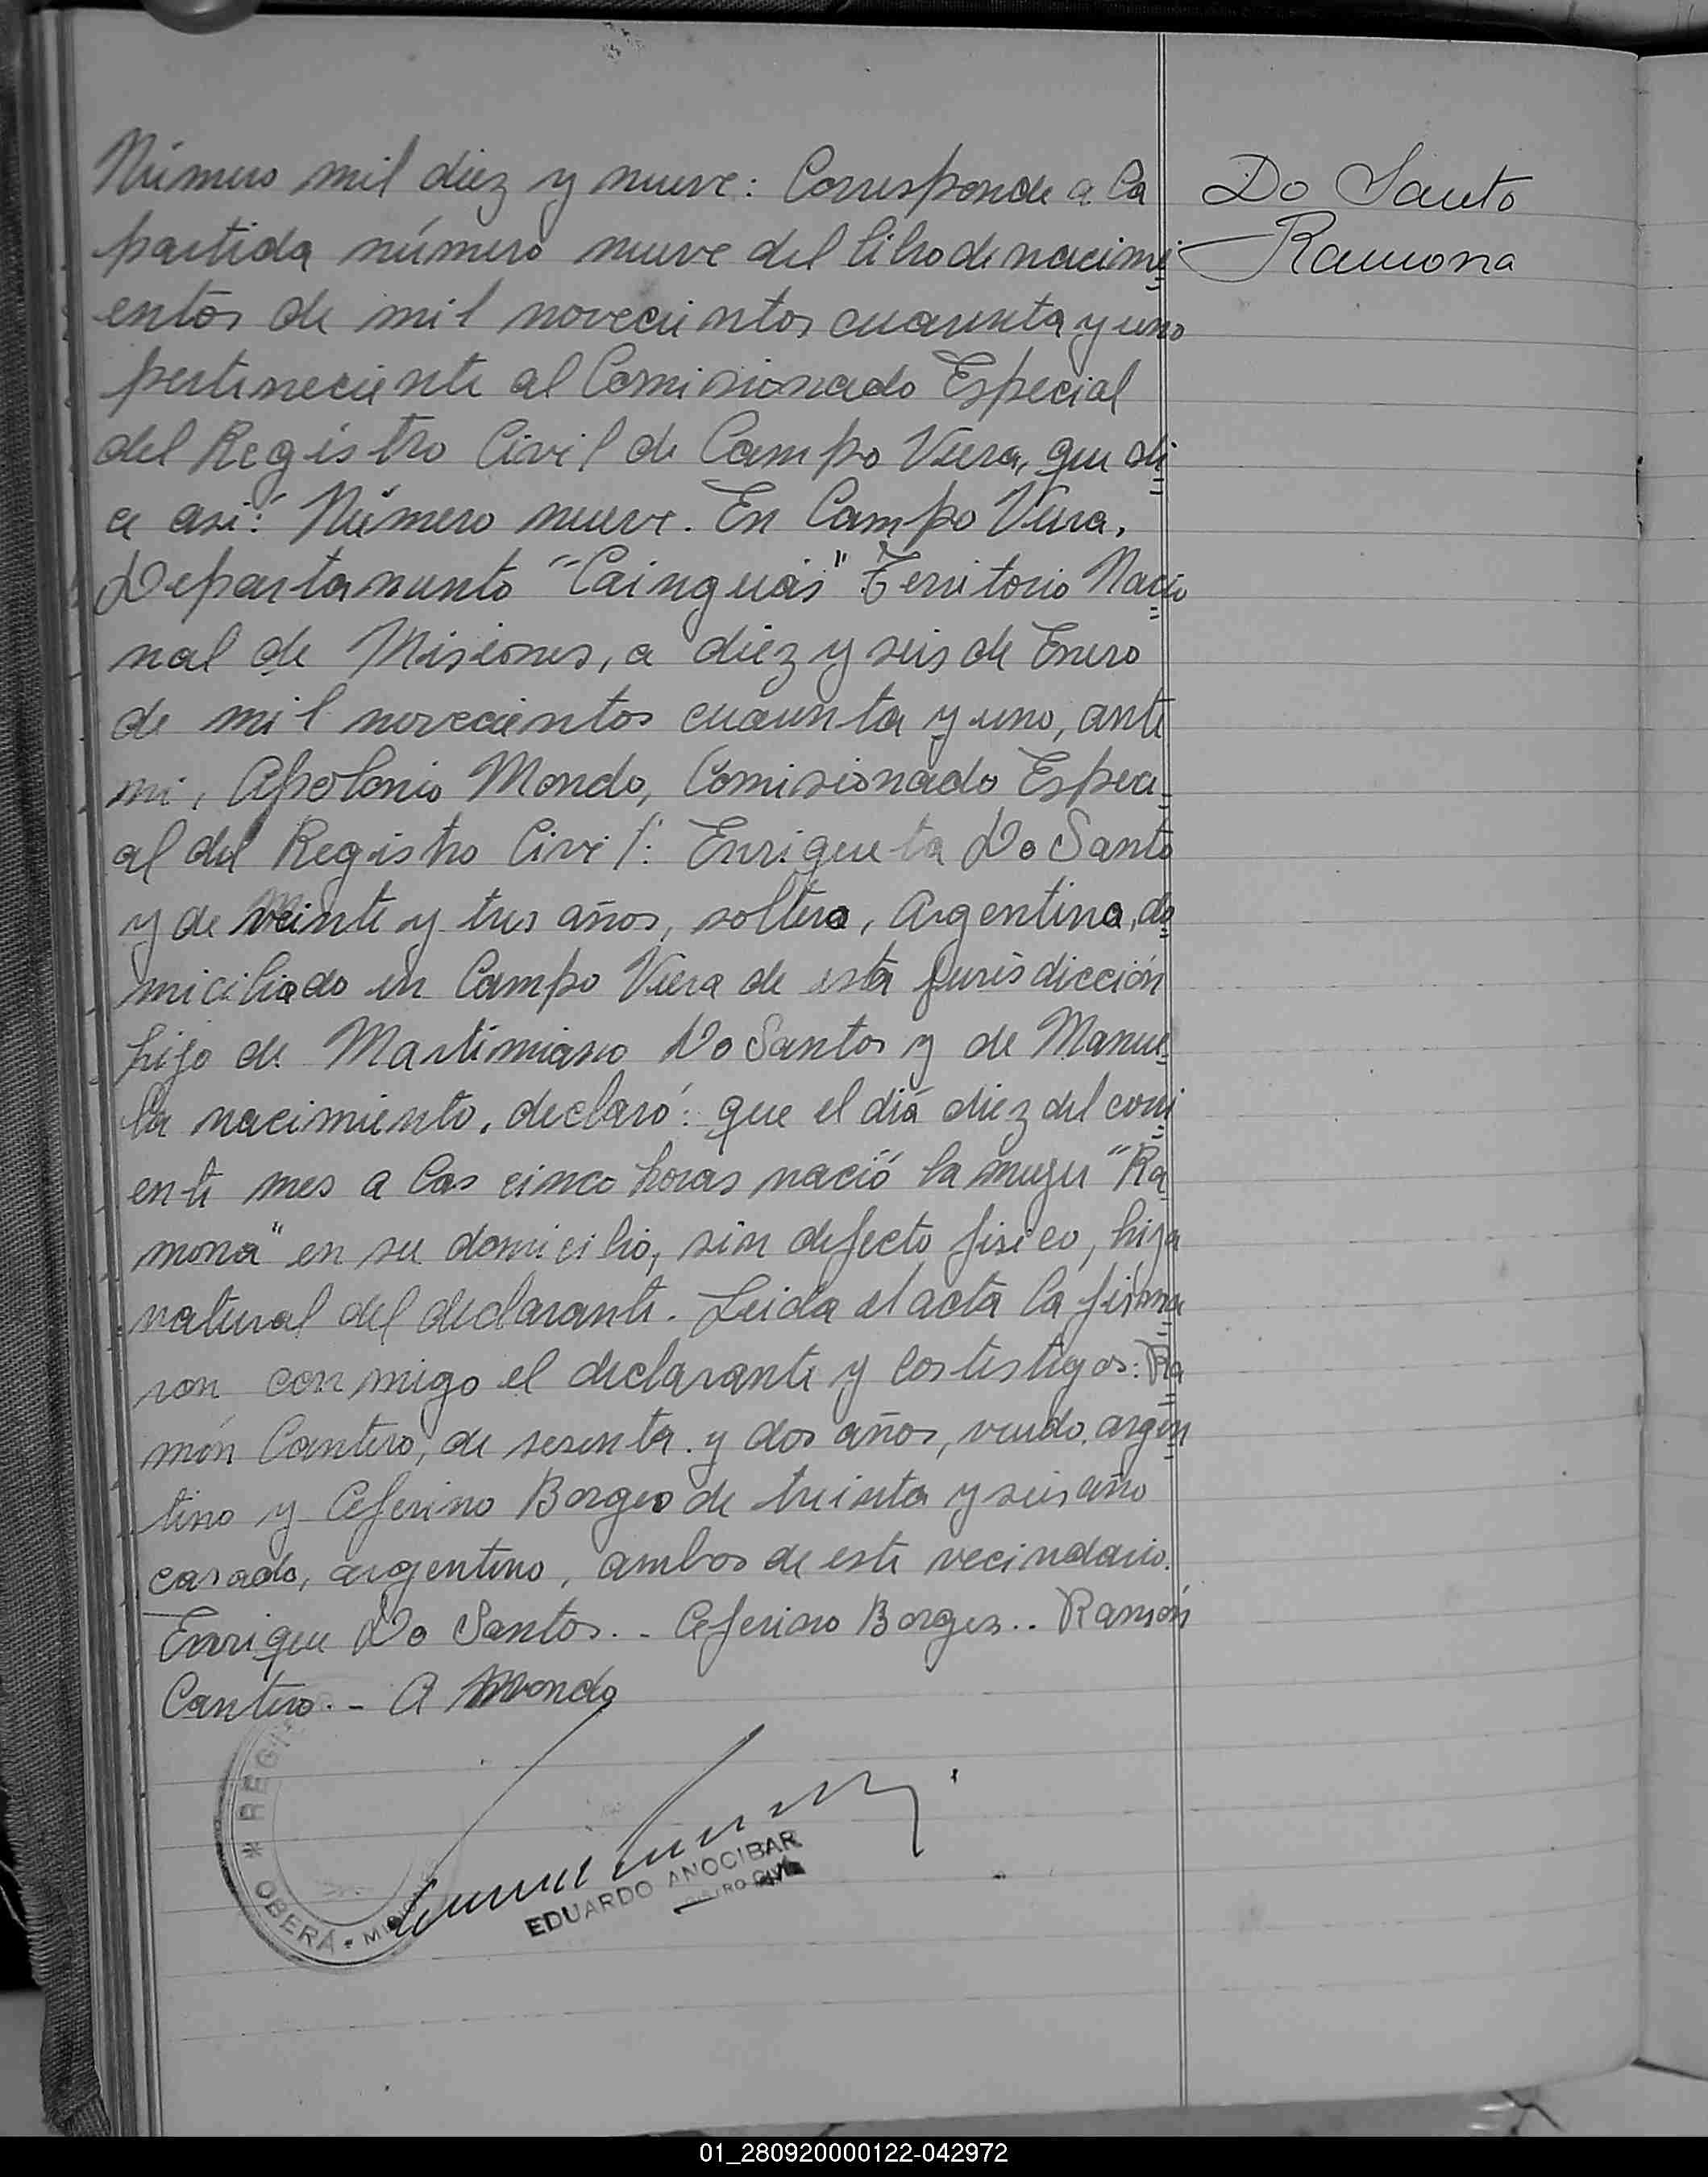 Número mil diez y nueve: Corresponde a la
partida número nueve del libro de nacimi
entos de mil novecientos cuarenta y uno
perteneciente al Comisionado Especial
del Registro Civil de Campo Viera, que di
ce asi: Número nueve. En Campo Viera,
Departamento "Cainguás" Territorio Nacio
nal de Misiones, a diez y seis de Enero
de mil novecientos cuarenta y uno, ante
mi, Apolonio Mondo, Comisionado Especi
al del Registro Civil: Enriqueta Do Santo
y de veinte y tres años, soltero, Argentino, do
miciliado en Campo Viera de esta jurisdicción
hijo de Martimiano Do Santos y de Manue
la nacimiento, declaró: que el diá diez del corri
ente mes a las cinco horas nació la mujer "Ra
mona" en su domicilio, sin defecto fisico, hija
natural del declarante. Leida el acta la firma
ron con migo el declarante y los testigos: Ra
món Cantero, de sesenta y dos años, viudo, argen
tino y Ceferino Borges de treinta y seis año
casado, argentino, ambos de este vecindario.
Enrique Do Santos.- Ceferino Borges.. Ramón
Cantero.- A Mondo
Do Santo
Ramona
* REGI
OBERÁ - MI
EDUARDO ANOCIBAR
CIVIL
01_280920000122-042972